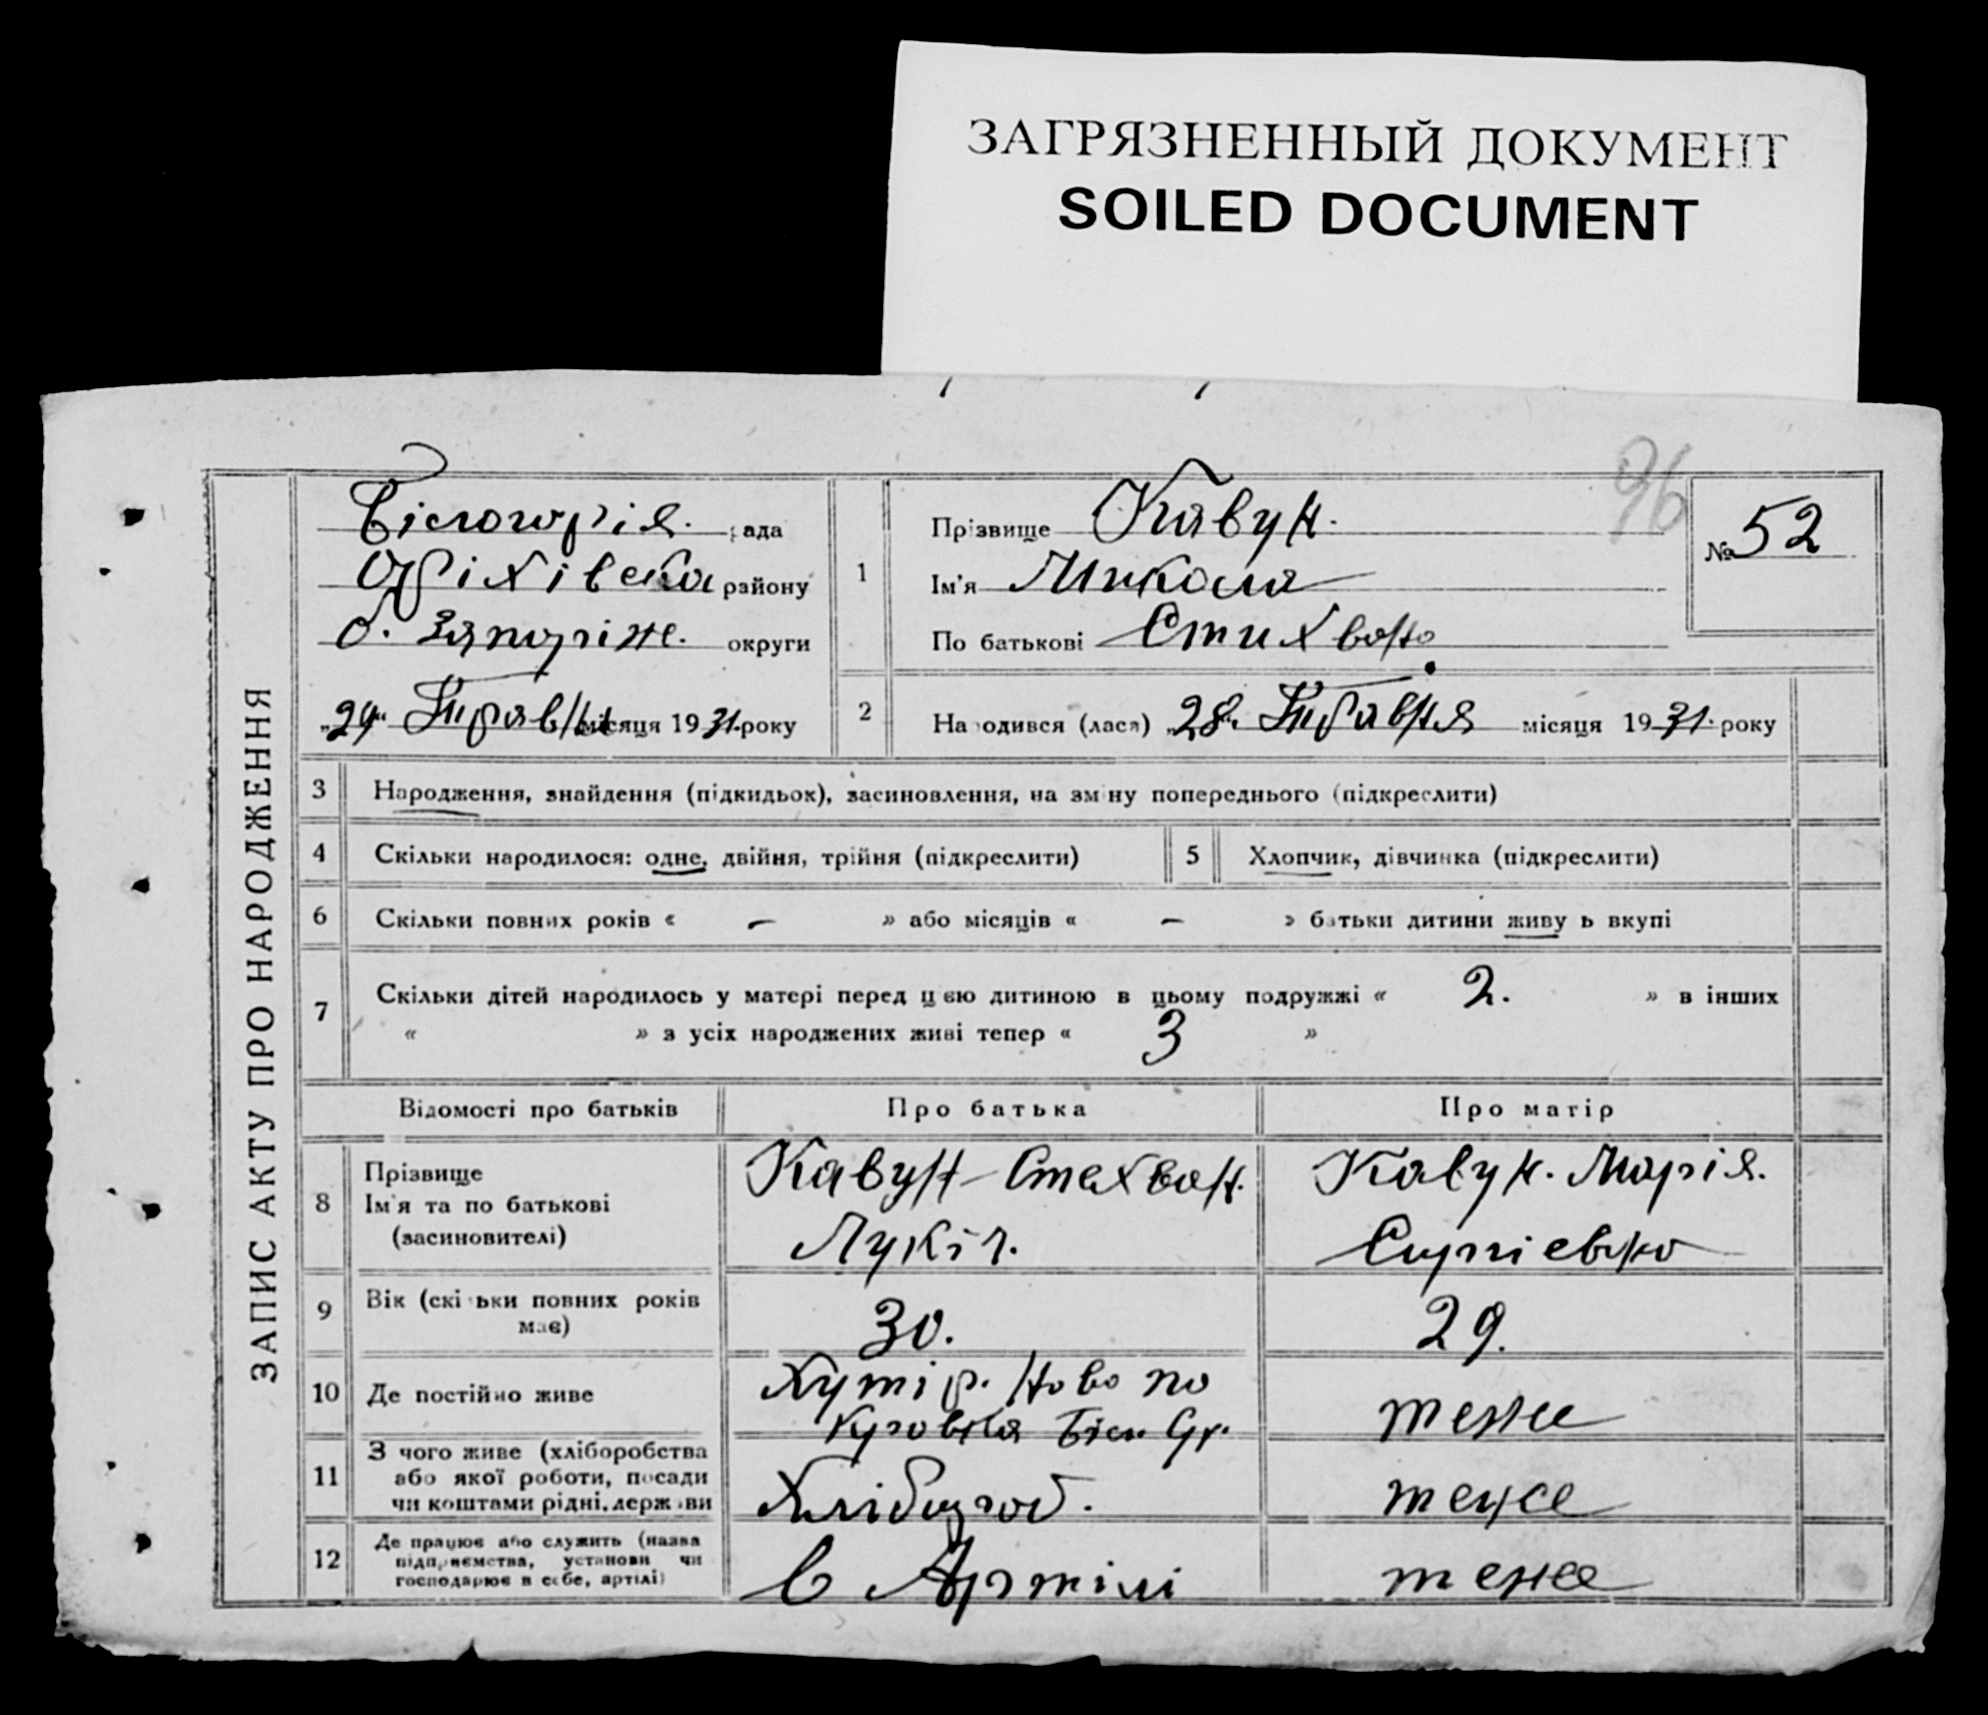 ЗАГРЯЗНЕННЫЙ ДОКУМЕНТ
SOILED DOCUMENT
96
ЗАПИС АКТУ ПРО НАРОДЖЕННЯ
Білогорія. рада
Оріхівска району
О. Запоріже. округи
„29“ Травня місяця 1931. року
1
Прізвище Кавун.
Ім'я Микола
По батькові Стихвано
№ 52
2
Народився (лася) „28“ Травня місяця 1931. року
3 Народження, знайдення (підкидьох), засиновлення, на зміну попереднього (підкреслити)
4 Скільки народилося: одне, двійня, трійня (підкреслити)
5 Хлопчик, дівчинка (підкреслити)
6 Скільки повних років « — » або місяців « — » батьки дитини живуть вкупі
7 Скільки дітей народилось у матері перед цією дитиною в цьому подружжі « 2. » в інших
« » з усіх народжених живі тепер « 3 »
Відомості про батьків Про батька Про матір
8 Прізвище
Ім'я та по батькові
(засиновителі)
Кавун Стехван.
Лукіч.
Кавун. Марія.
Сиргіевно
9 Вік (скільки повних років
має)
30.
29.
10 Де постійно живе
Хутір. Ново по
Біл.
теже
11 З чого живе (хліборобства
або якої роботи, посади
чи коштами рідні, держави
Хлібороб.
теже
12 Де працює або служить (назва
підприємства, установи чи
господарює в себе, артілі)
в Артілі
теже